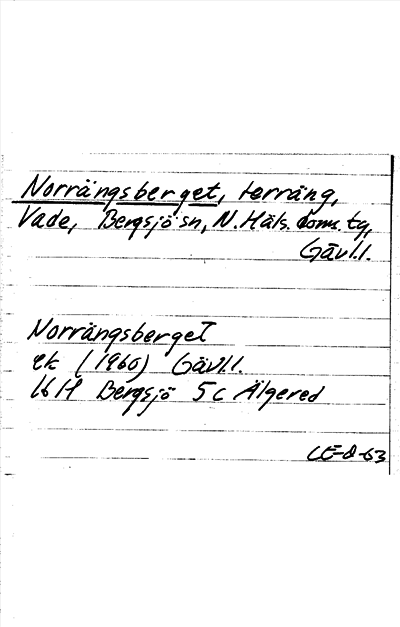 Norrängsberget, terräng,
Vade, Bergsjö sn, N. Häls. doms. tg,
Gävl.l.
Norrängsberget
ek (1960) Gävl.l.
16H Bergsjö 5c Älgered